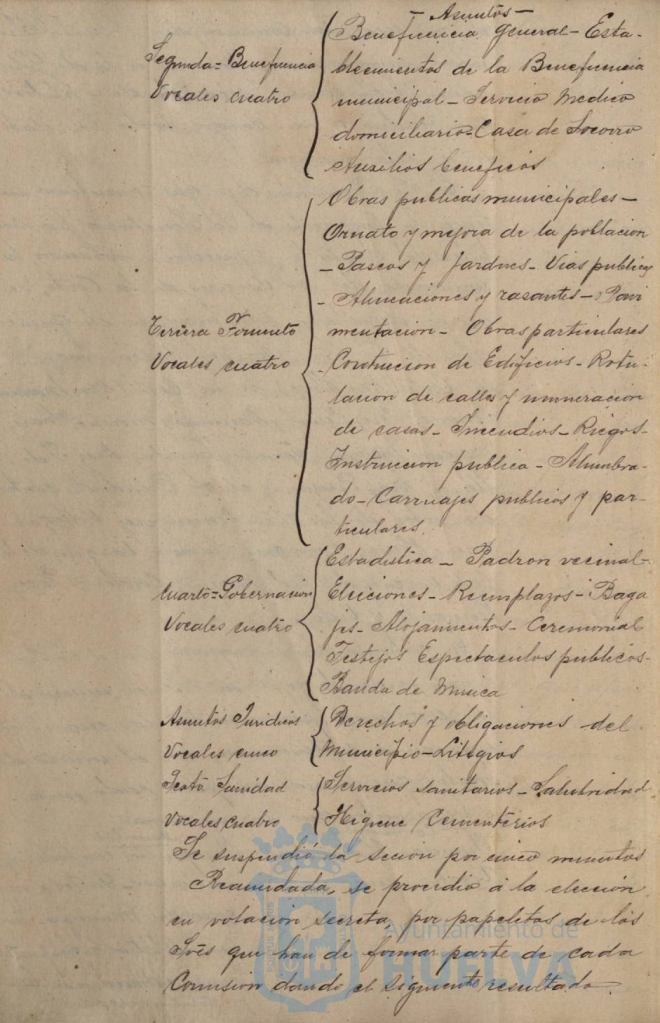 - Asuntos -
Segunda = Beneficencia
Vocales cuatro
Beneficencia general - Esta-
blecimientos de la Beneficencia
municipal - Servicio Medico
domiciliario - Casa de Socorro
Auxilios beneficos
Tercera Fomento
Vocales cuatro
Obras publicas municipales -
Ornato y mejora de la poblacion
- Paseos y Jardines - Vias publicas
- Alineaciones y rasantes - Pavi
mentacion - Obras particulares
- Contrucion de Edificios - Rotu-
lacion de calles y numeracion
de casas - Incendios - Riegos -
Instrucion publica - Alumbra-
do - Carruajes publicos y par-
ticulares.
Cuarto = Gobernacion
Vocales cuatro
Estadistica - Padron vecinal -
Eleiciones - Reemplazos - Baga
jes - Alojamientos - Ceremonial
Festejos Espectaculos publicos -
Banda de Musica
Asuntos Juridicos
Vocales cinco
Derechos y obligaciones del
Municipio - Litigios
Sexta Sanidad
Vocales cuatro
Servicios sanitarios - Salubridad
Higiene Cementerios
Se suspendió la secion por cinco minutos
Reanudada, se procedio á la elección
en votación secreta por papeletas de los
Sres que han de formar parte de cada
Comision dando el siguiente resultado.
Ayuntamiento de
HUELVA